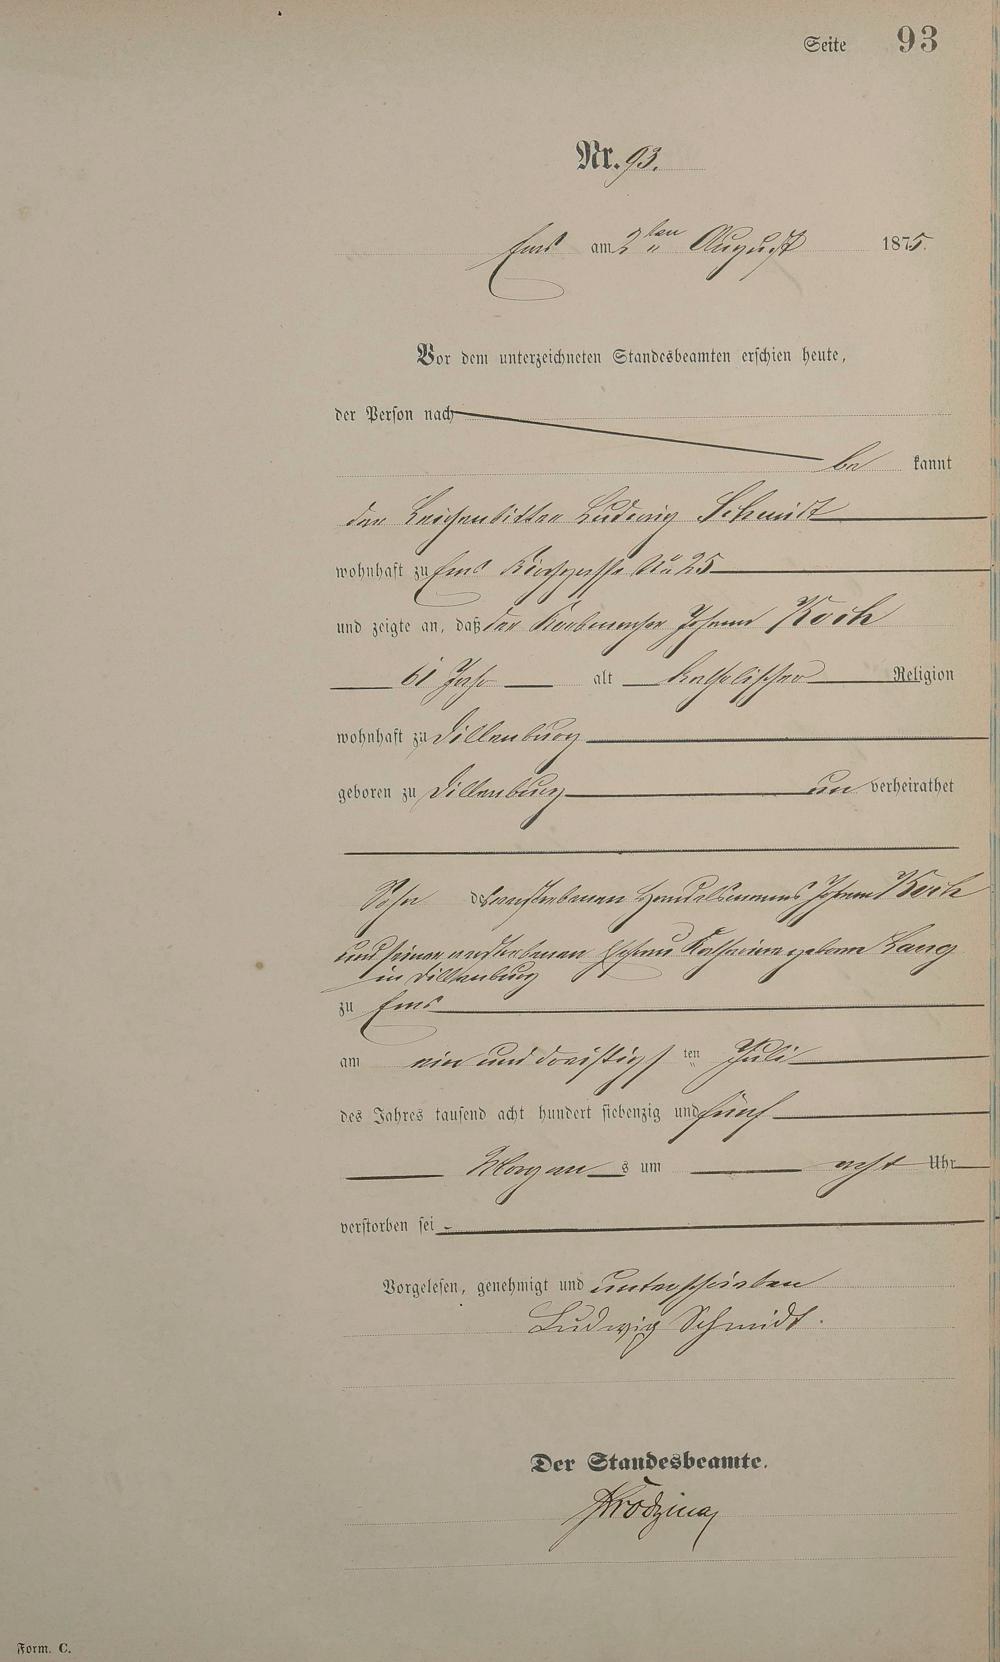 Seite 93
Nr. 93.
Ems am 2ten August 1875.
Vor dem unterzeichneten Standesbeamten erschien heute,
der Person nach
be kannt
der Leichenbitter Ludwig Schmidt
wohnhaft zu Ems Kirchgasse No 25
und zeigte an, daß der Korbmacher Johann Koch
61 Jahr alt katholischer Religion
wohnhaft zu Dillenburg
geboren zu Dillenburg un verheirathet
Sohn des verstorbenen Handelsmanns Johann Koch
und seiner verstorbenen Ehefrau Katharina geborne Lang
in Dillenburg
zu Ems
am ein und dreißigsten Juli
des Jahres tausend acht hundert siebenzig und fünf
Morgens um acht Uhr
verstorben sei
Vorgelesen, genehmigt und unterschrieben
Ludwig Schmidt.
Der Standesbeamte.
Form. C.